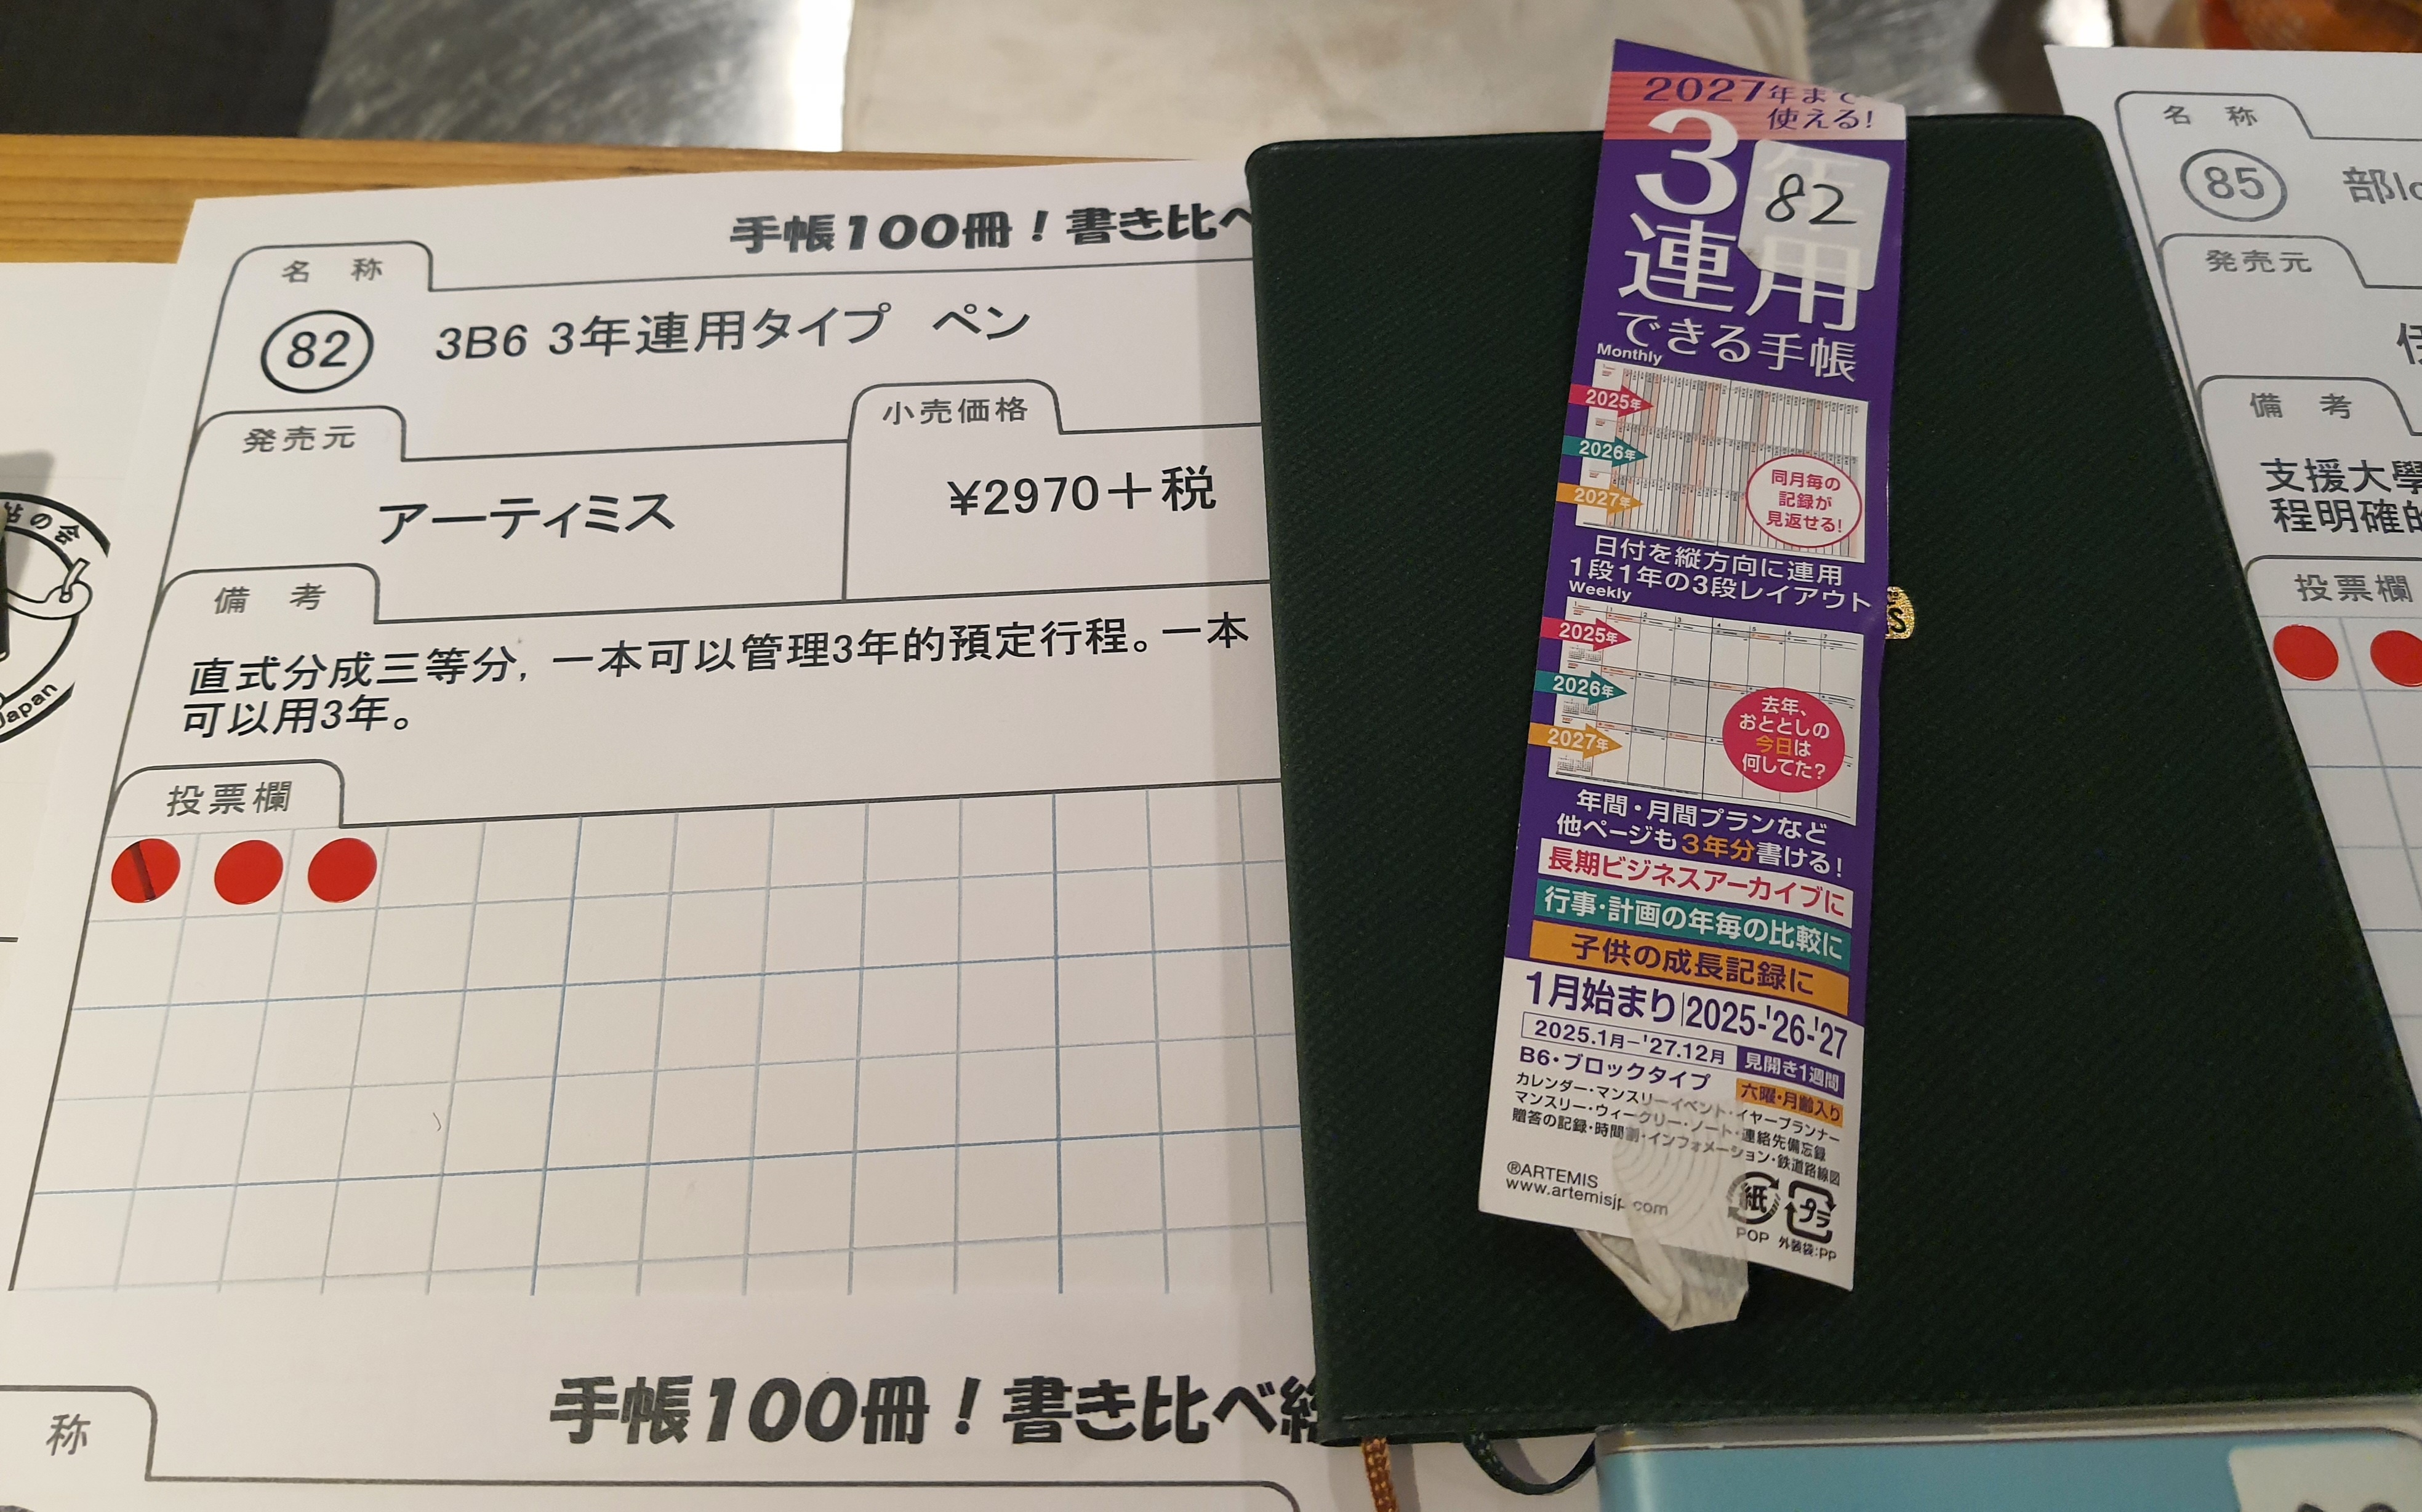 手帳100冊！書き比べ
名 称
82
3B6 3年連用タイプ ペン
発売元
アーティミス
小売価格
¥2970＋税
備 考
直式分成三等分，一本可以管理3年的預定行程。一本
可以用3年。
投票欄
手帳100冊！書き比べ総
称
帖の会
Japan
2027年まで
使える!
3年
82
連用
できる手帳
Monthly
2025年
2026年
2027年
同月毎の
記録が
見返せる!
日付を縦方向に連用
1段1年の3段レイアウト
Weekly
2025年
2026年
2027年
去年、
おととしの
今日は
何してた?
年間・月間プランなど
他ページも3年分書ける!
長期ビジネスアーカイブに
行事・計画の年毎の比較に
子供の成長記録に
1月始まり 2025-'26-'27
2025.1月-'27.12月 見開き1週間
B6・ブロックタイプ 六曜・月齢入り
カレンダー・マンスリーイベント・イヤープランナー
マンスリー・ウィークリー・ノート・連絡先備忘録
贈答の記録・時間割・インフォメーション・鉄道路線図
®ARTEMIS
www.artemisjp.com
紙
POP
プラ
外装袋:PP
名 称
85
部
発売元
備 考
支援大學
程明確的
投票欄